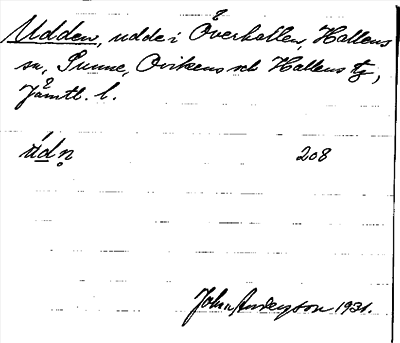 Udden, udde i Överhallen, Hallens
sn, Sunne, Ovikens och Hallens tg,
Jämtl. l.
ú̀dn̥ 208
John Anderson 1931.